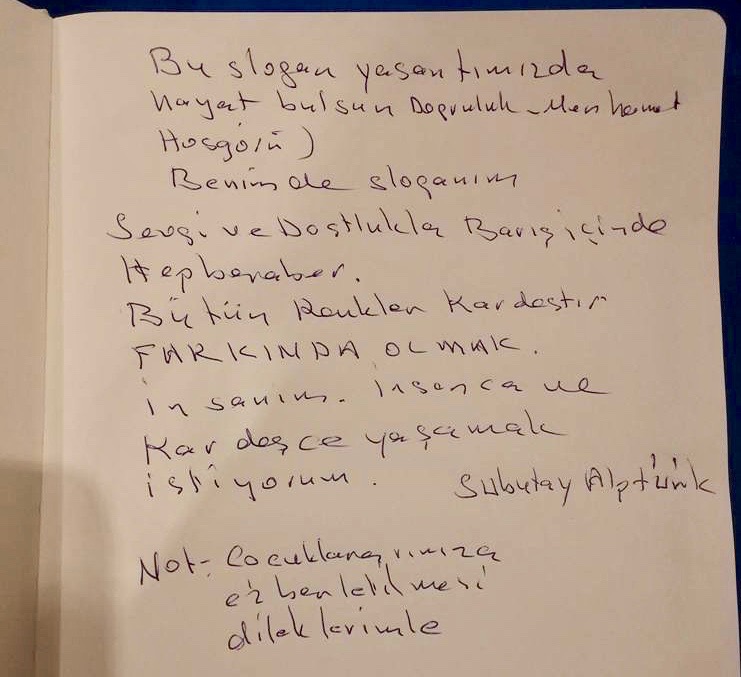 Bu slogan yaşantımızda
hayat bulsun Doğruluk - Merhamet
Hoşgörü)
Benim de sloganım
Sevgi ve Dostlukla Barış içinde
Hep beraber.
Bütün Renkler Kardeştir
FARKINDA OLMAK.
insanım. insanca ve
Kardeşçe yaşamak
istiyorum. Subutay Alptürk
Not:- Çocuklarımıza
ezberletilmesi
dileklerimle